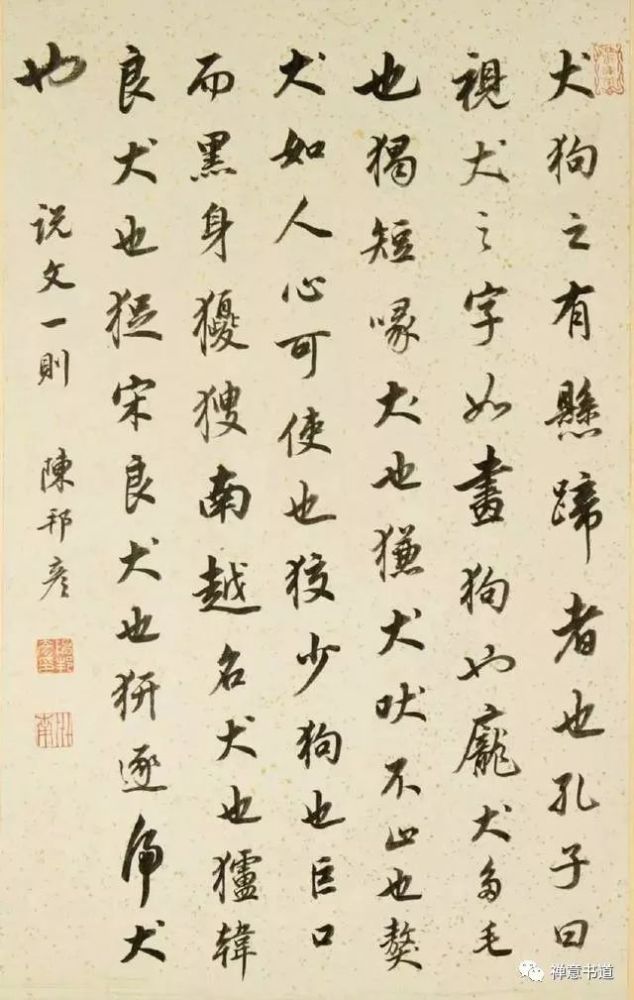 犬狗之有懸蹄者也孔子曰
視犬之字如畫狗也龐犬多毛
也猲短喙犬也㺌犬吠不止也獒
犬如人心可使也狡少狗也巨口
而黑身獿獀南越名犬也獹韓
良犬也猑宋良犬也猏逐虎犬
也
說文一則
陳邦彥
禅意书道